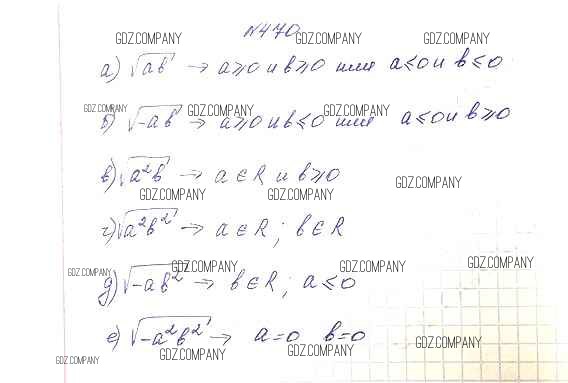 №470
GDZ.COMPANY GDZ.COMPANY GDZ.COMPANY
а) √ab → a⩾0 и b⩾0 или a⩽0 и b⩽0
GDZ.COMPANY GDZ.COMPANY GDZ.COMPANY
б) √-ab → a⩾0 и b⩽0 или a⩽0 и b⩾0
в) √a²b → a∈R и b⩾0
GDZ.COMPANY GDZ.COMPANY GDZ.COMPANY
г) √a²b² → a∈R; b∈R
GDZ.COMPANY GDZ.COMPANY GDZ.COMPANY GDZ.COMPANY
д) √-ab² → b∈R; a⩽0
е) √-a²b² → a=0 b=0
GDZ.COMPANY GDZ.COMPANY GDZ.COMPANY GDZ.COMPANY